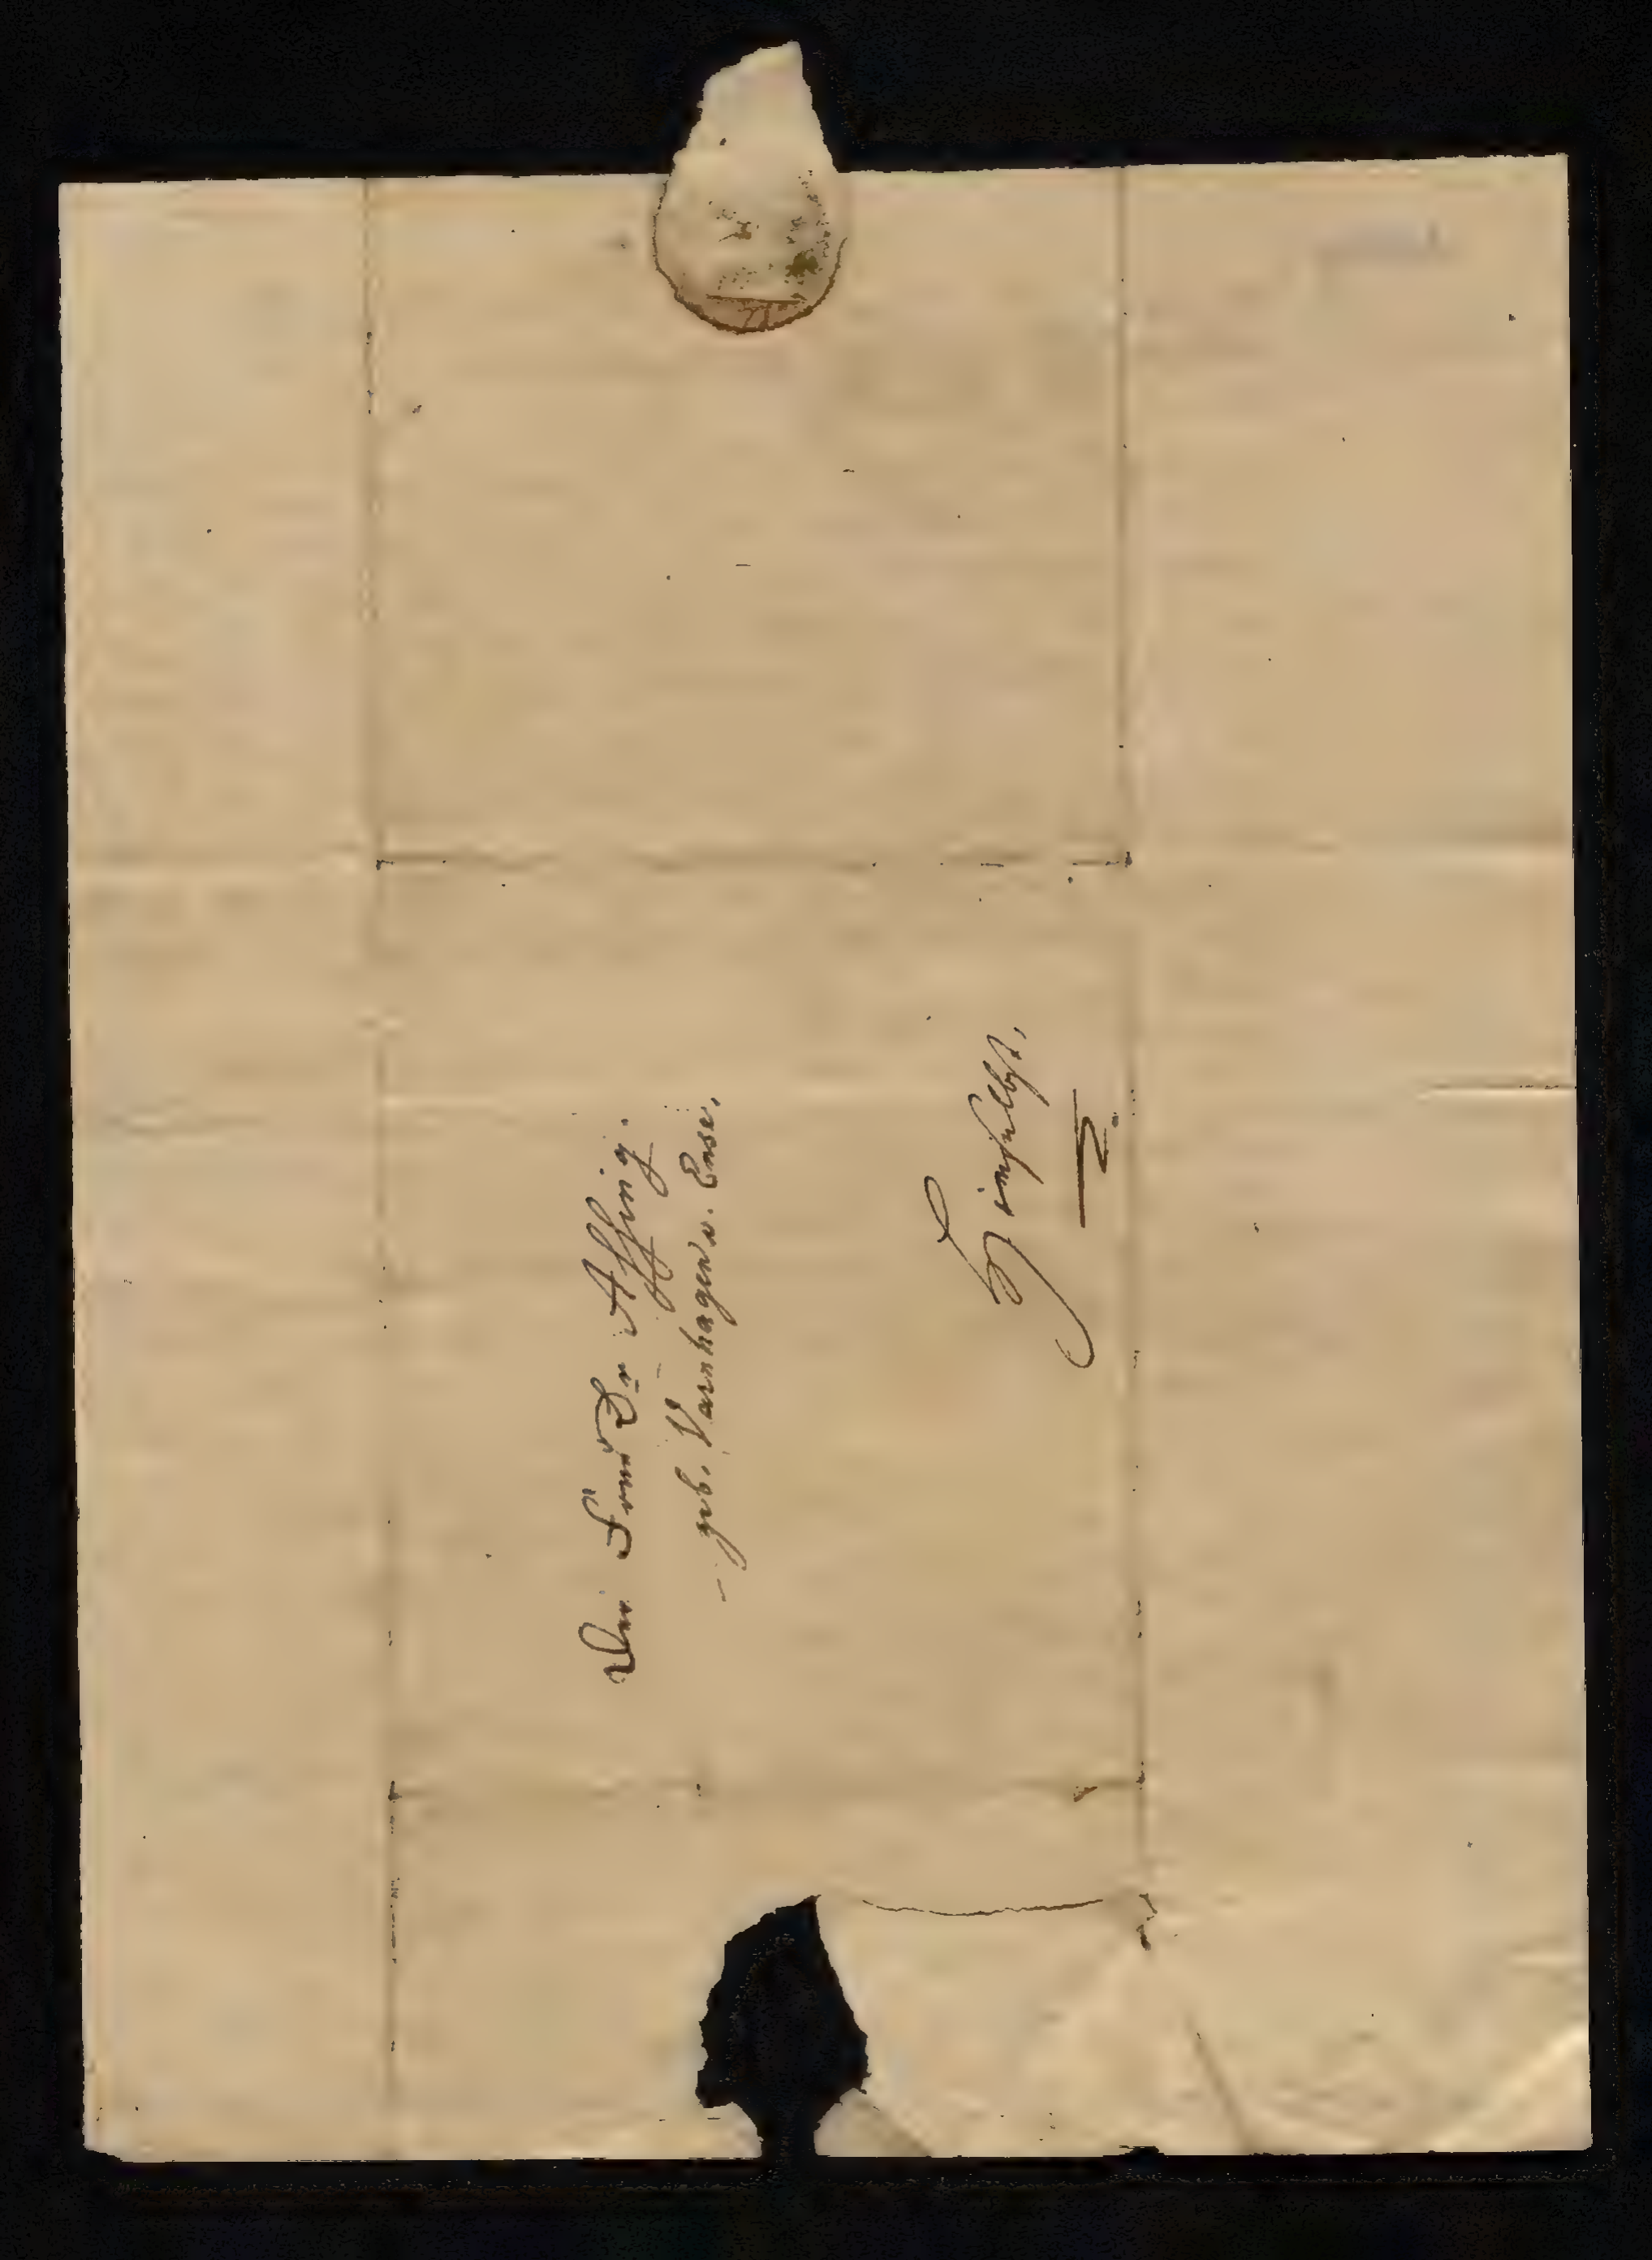 Der Frau Dr Assing.
geb. Varnhagen v. Ense,
Hierselbst,